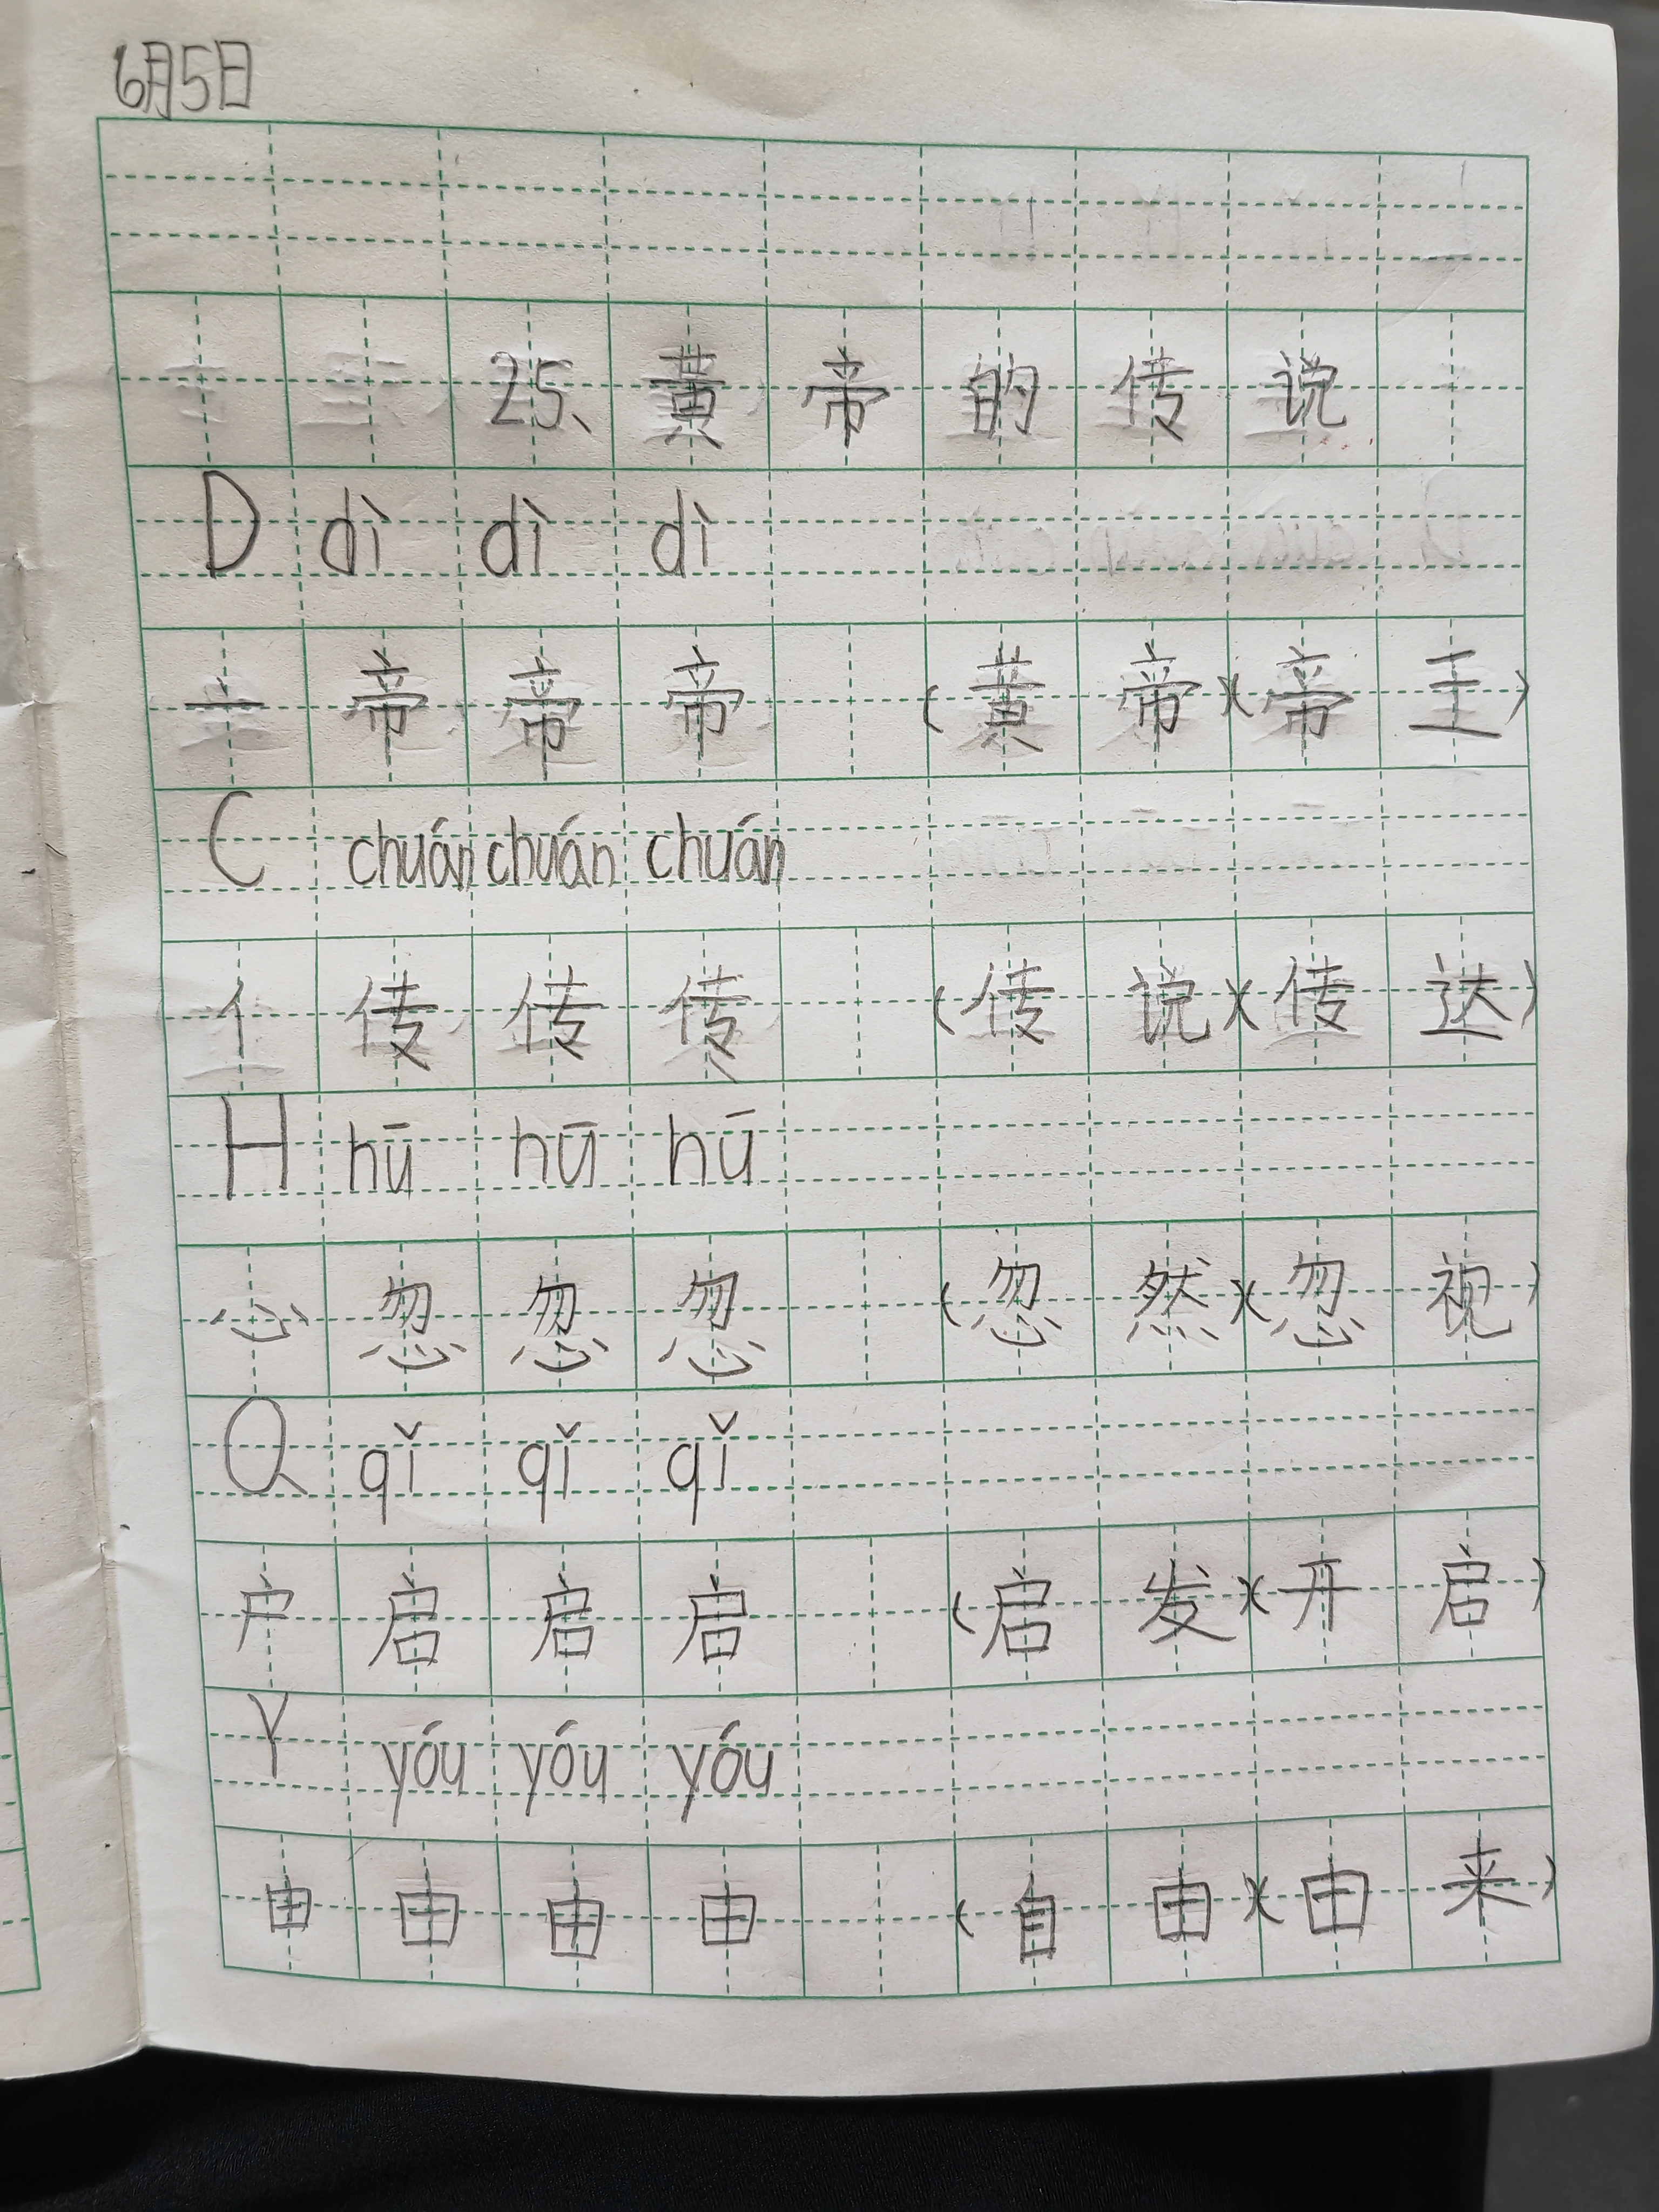 6月5日
25、黄帝的传说
D dì dì dì
亠 帝 帝 帝 (黄帝)(帝王)
C chuán chuán chuán
亻 传 传 传 (传说)(传达)
H hū hū hū
心 忽 忽 忽 (忽然)(忽视)
Q qǐ qǐ qǐ
户 启 启 启 (启发)(开启)
Y yóu yóu yóu
由 由 由 由 (自由)(由来)